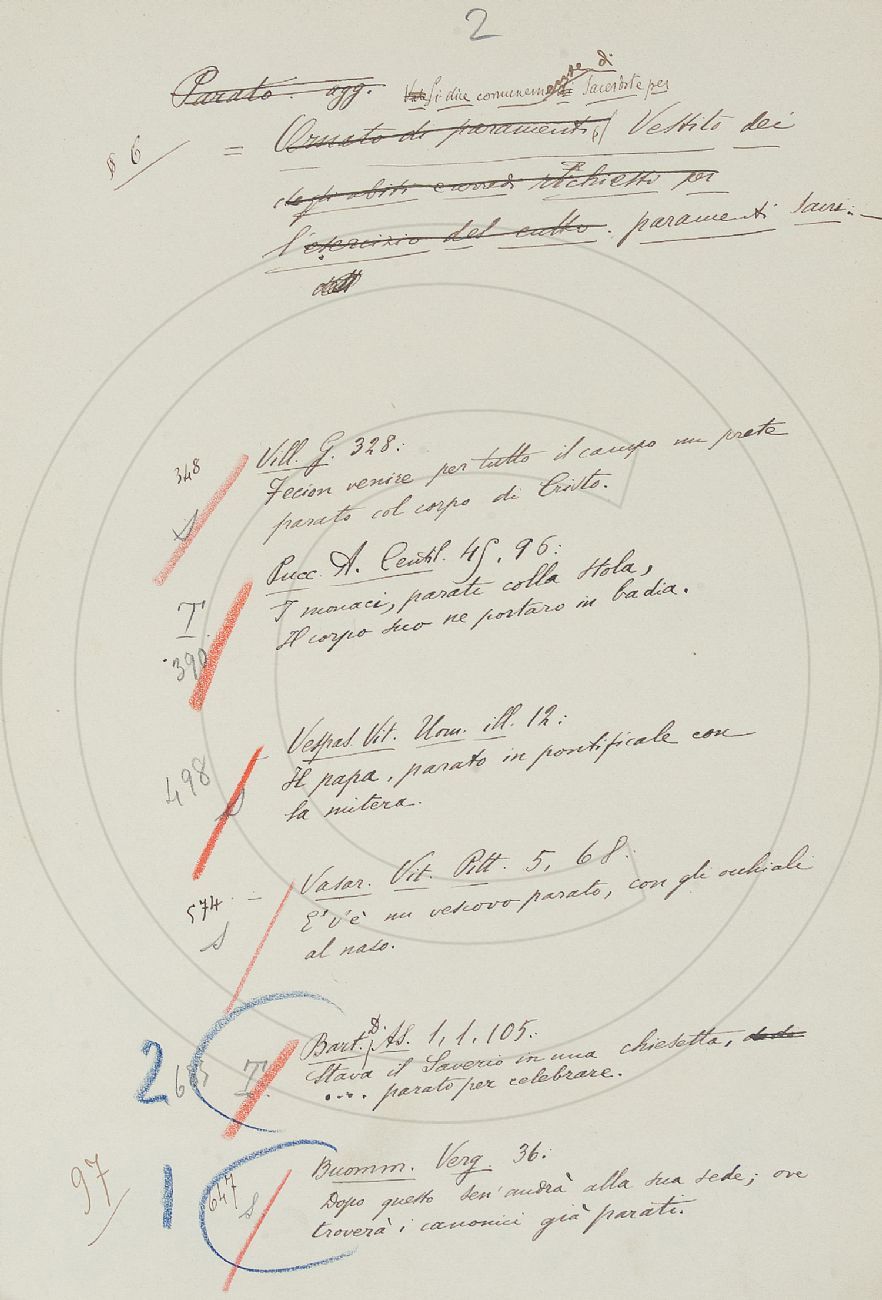 2
Parato. agg. Si dice comunemente di Sacerdote per
§ 6 = Ornato di paramenti, Vestito dei
degli abiti e arredi richiesti per
l'esercizio del culto. paramenti sacri.
348 Vill. G. 328:
Fecion venire per tutto il campo un prete
parato col corpo di Cristo.
Pucc. A. Centil. 45, 96:
T I monaci, parati colla stola,
390 Il corpo suo ne portaro in badia.
498 Vespas. Vit. Uom. ill. 12:
Il papa, parato in pontificale con
la mitera.
574 Vasar. Vit. Pitt. 5, 68:
S E' v'è un vescovo parato, con gli occhiali
al naso.
2 T Bart. D. As. 1, 1, 105:
Stava il Saverio in una chiesetta,
.... parato per celebrare.
97 1 647 S Buomm. Verg 36:
Dopo questo sen' andrà alla sua sede; ove
troverà i canonici già parati.